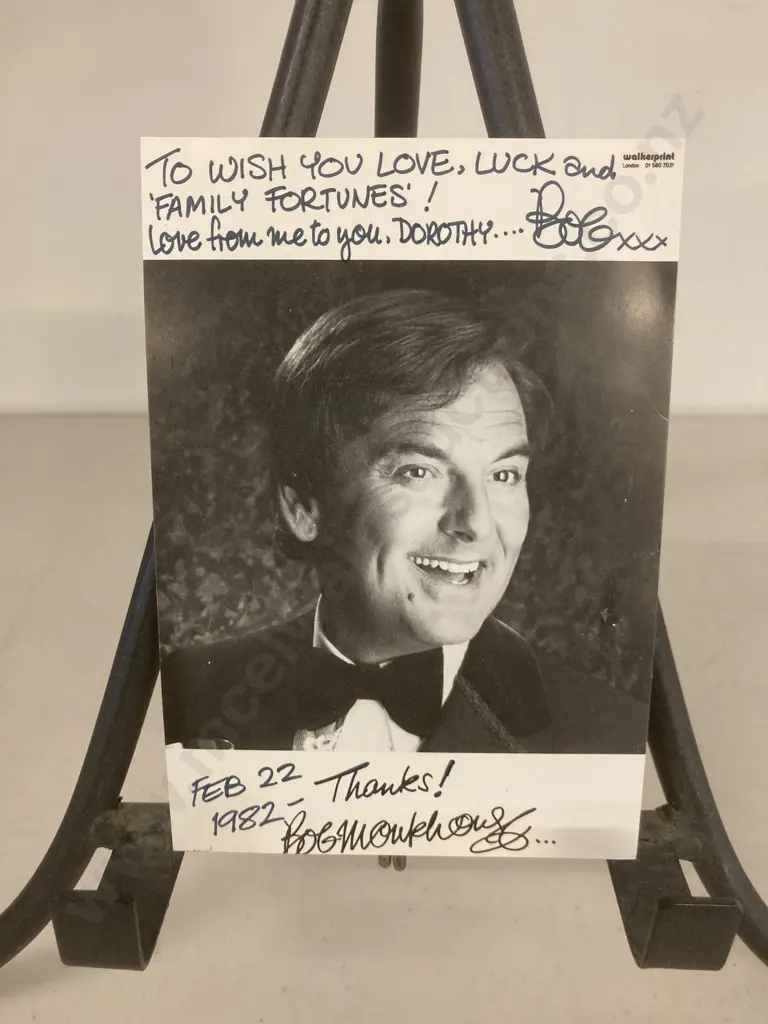 TO WISH YOU LOVE, LUCK and
'FAMILY FORTUNES'!
Love from me to you, DOROTHY.... Bob xxx
walkerprint
London 01 580 7031
FEB 22
1982 - Thanks!
Bob Monkhouse...